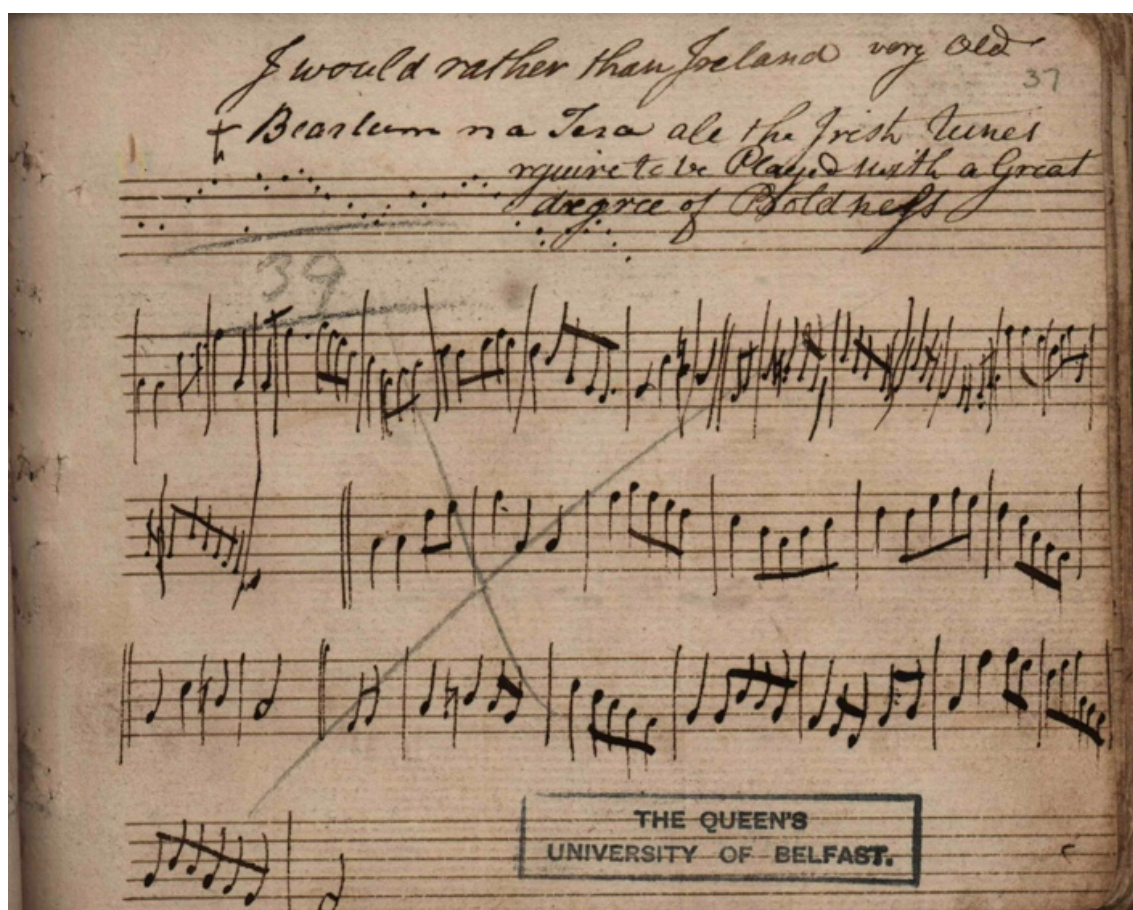 I would rather than Ireland very Old
37
+ Bearlum na Tera ale the Irish tunes
rquire to be Played with a Great
degree of Boldness
39
THE QUEEN'S
UNIVERSITY OF BELFAST.